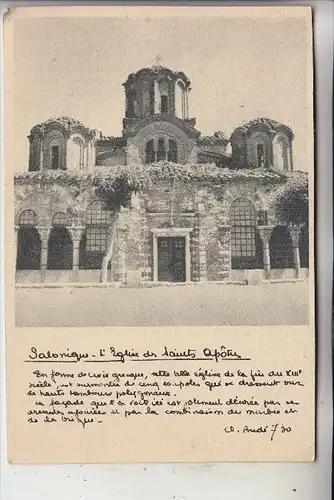 Salonique - L'Eglise des Saints Apôtres
En forme de croix grecque, cette belle église de la fin du XIIIe
siècle, est surmontée de cinq coupoles qui se dressent sur
de hauts tambours polygonaux.
La façade que l'on voit ici est joliment décorée par ses
arcades ajourées et par la combinaison du marbre et
de la brique.
730